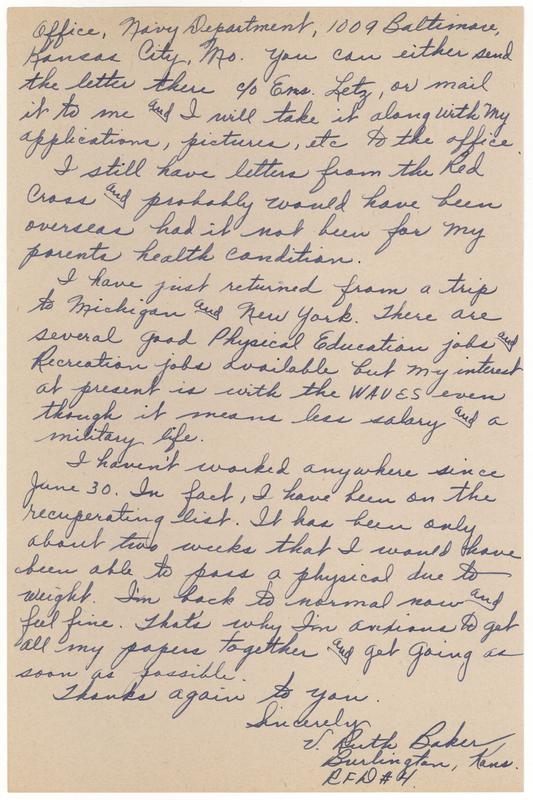 Office, Navy Department, 1009 Baltimore,
Kansas City, Mo. You can either send
the letter there c/o Ens. Letz, or mail
it to me and I will take it along with my
applications, pictures, etc to the office.
I still have letters from the Red
Cross and probably would have been
overseas had it not been for my
parents health condition.
I have just returned from a trip
to Michigan and New York. There are
several good Physical Education jobs and
Recreation jobs available but my interest
at present is with the WAVES even
though it means less salary and a
military life.
I haven't worked anywhere since
June 30. In fact, I have been on the
recuperating list. It has been only
about two weeks that I would have
been able to pass a physical due to
weight. I'm back to normal now and
feel fine. That's why I'm anxious to get
all my papers together and get going as
soon as possible.
Thanks again to you.
Sincerely,
V. Ruth Baker
Burlington, Kans.
R.F.D # 4.